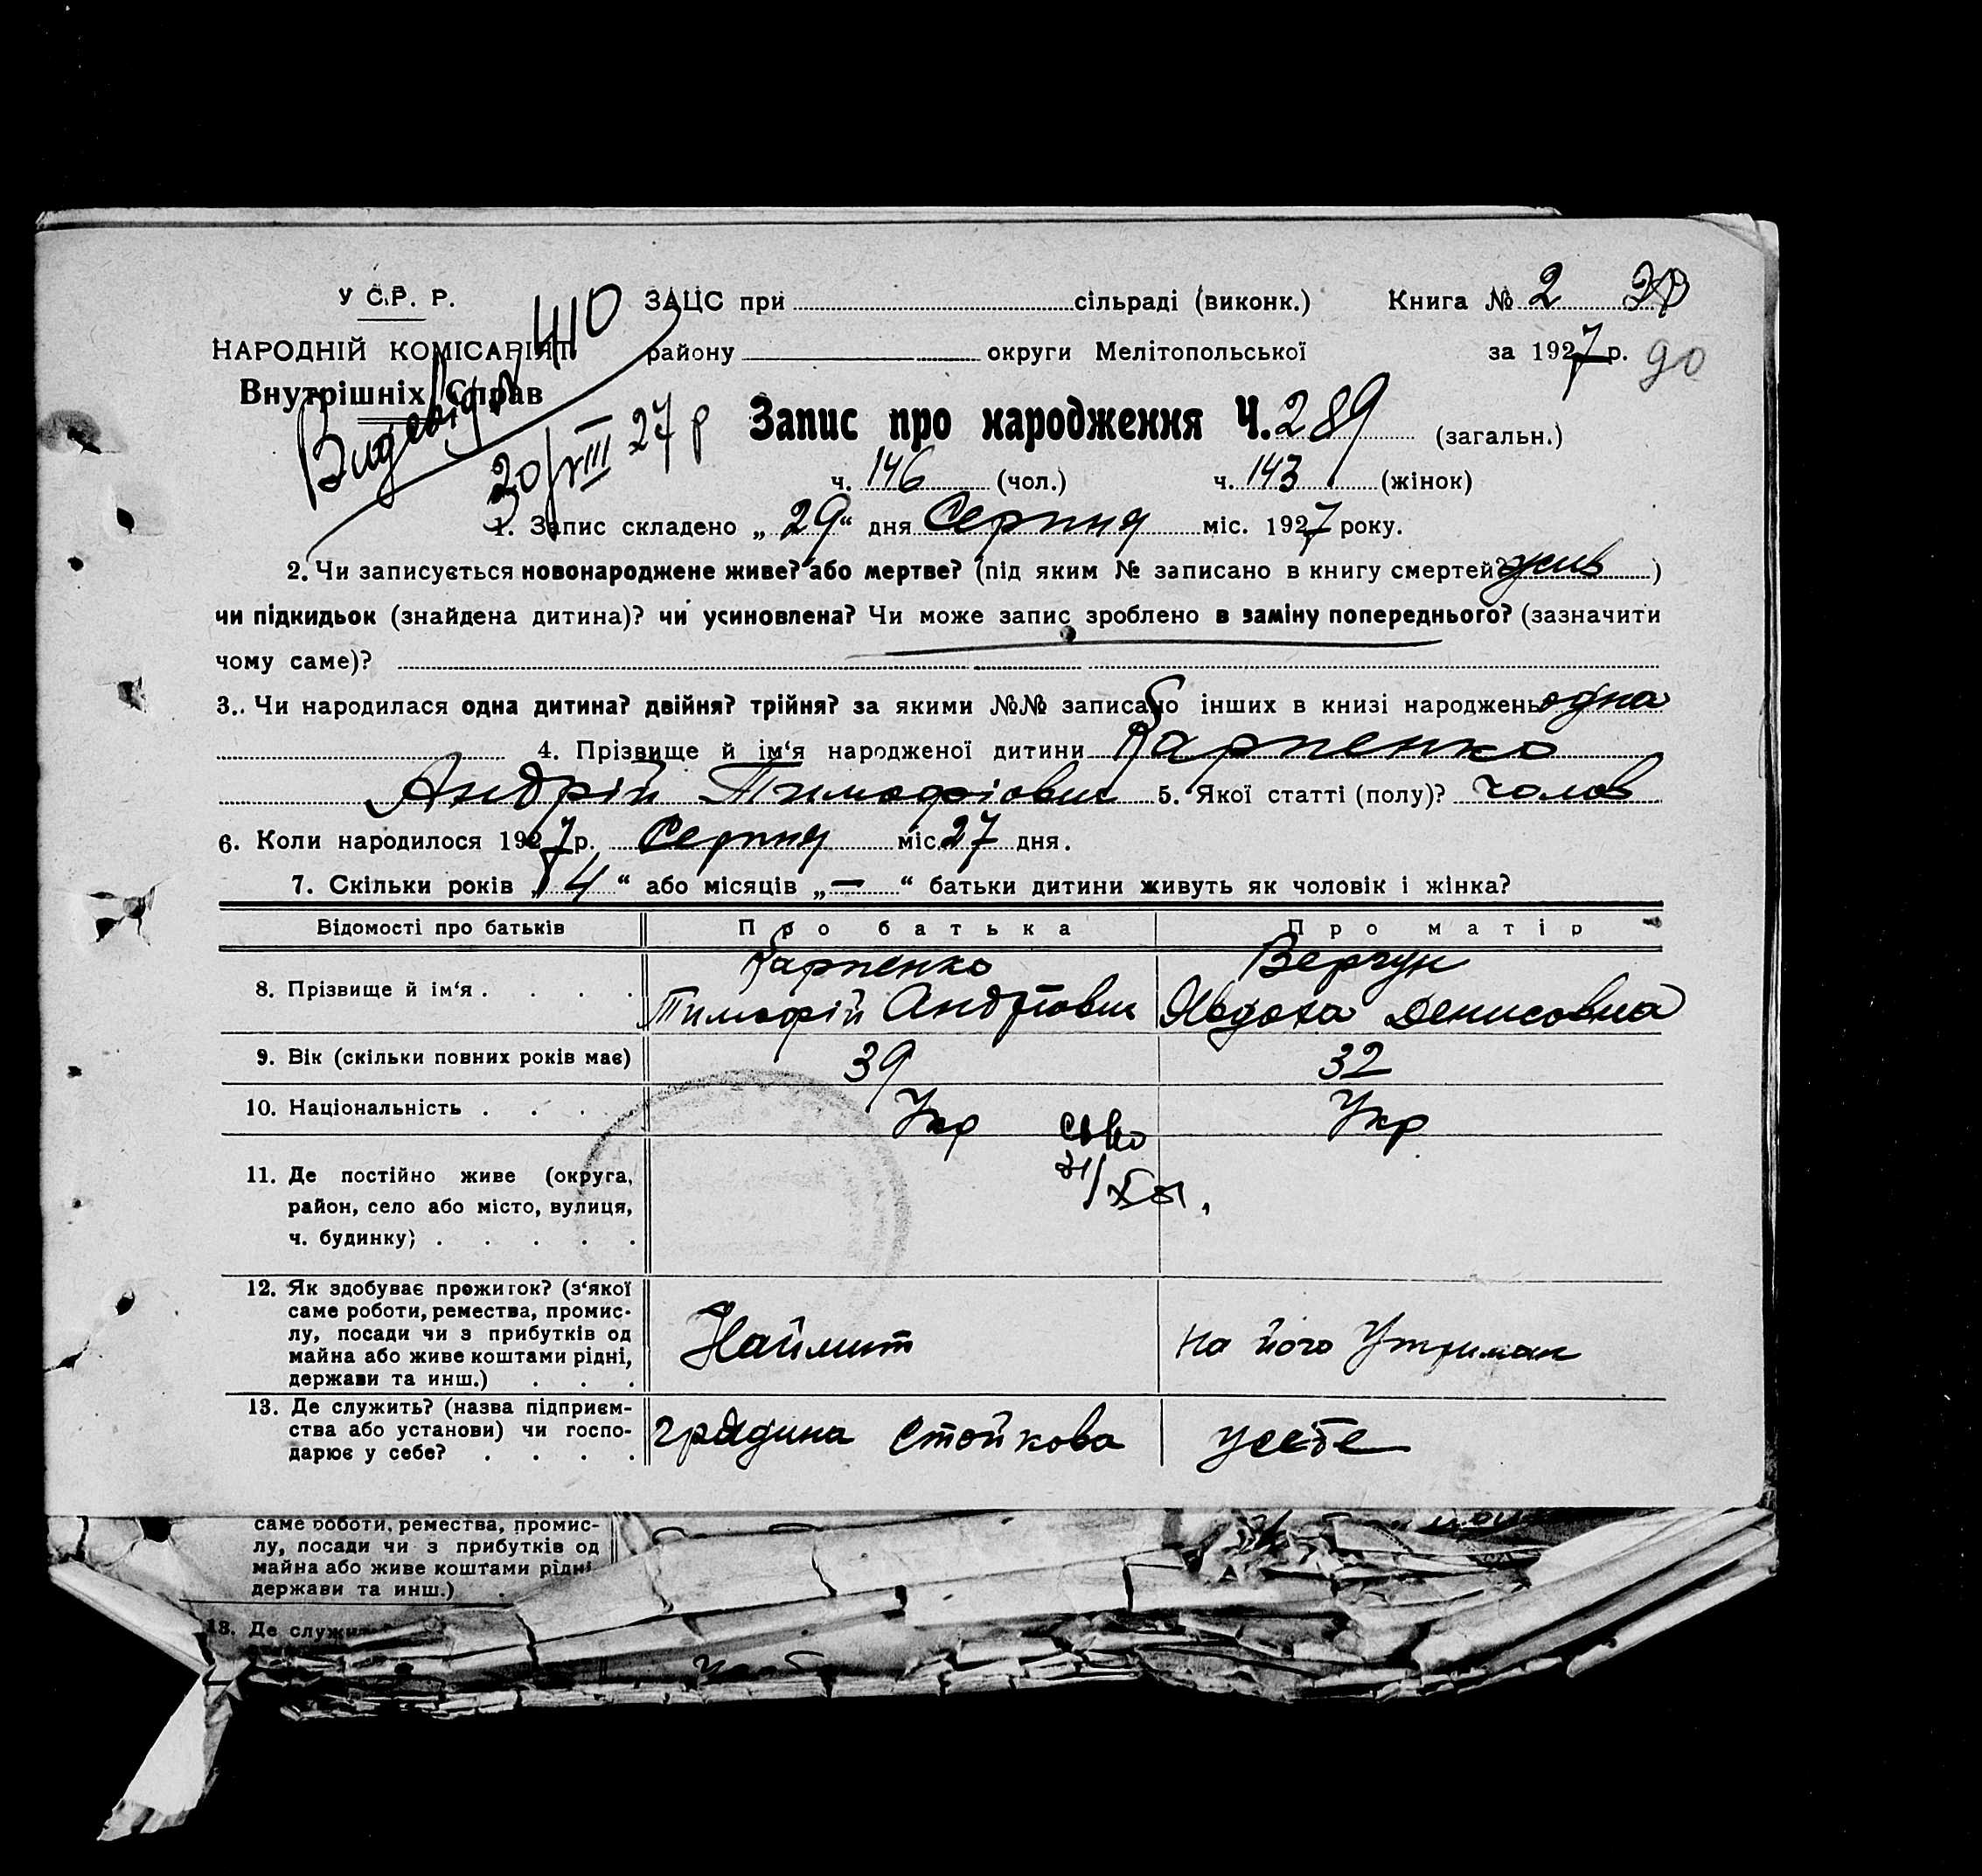 У С.Р. Р.
НАРОДНІЙ КОМІСАРІЯТ
Внутрішніх Справ
410
30/VIII 27 р
ЗАЦС при сільраді (виконк.) Книга № 2
району округи Мелітопольської за 1927 р. 90
Запис про народження Ч. 289 (загальн.)
ч. 146 (чол.) ч. 143 (жінок)
1. Запис складено „ 29 “ дня Серпня міс. 1927 року.
2. Чи записується новонароджене живе? або мертве? (під яким № записано в книгу смертей? жив )
чи підкидьок (знайдена дитина)? чи усиновлена? Чи може запис зроблено в заміну попереднього? (зазначити
чому саме)?
3. Чи народилася одна дитина? двійня? трійня? за якими №№ записано інших в книзі народжень одна
4. Прізвище й ім‘я народженої дитини Карпенко
Андрій Тимофіович 5. Якої статті (полу)? чолов
6. Коли народилося 1927 р. Серпня міс. 27 дня.
7. Скільки років „ 4 “ або місяців „ — “ батьки дитини живуть як чоловік і жінка?
Відомості про батьків Про батька Про матір
8. Прізвище й ім‘я . . . . Карпенко Тимофій Андріович Верчун Явдоха Денисовна
9. Вік (скільки повних років має) 39 32
10. Національність . . . Укр Укр
11. Де постійно живе (округа,
район, село або місто, вулиця,
ч. будинку) . . . . .
12. Як здобуває прожиток? (з‘якої
саме роботи, ремества, промис-
лу, посади чи з прибутків од
майна або живе коштами рідні,
держави та инш.) . . . Наймит на його Утриман
13. Де служить? (назва підприєм-
ства або установи) чи госпо-
дарює у себе? . . . . градина Стойкова усебе
саме роботи, ремества, промис-
лу, посади чи з прибутків од
майна або живе коштами рідні
держави та инш.) .
13. Де служить